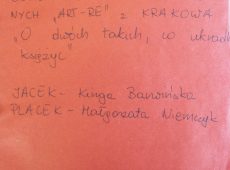 NYCH „ART-RE" z KRAKOWA
„O dwóch takich, co ukradli
księżyc"
JACEK - Kinga Barwińska
PLACEK - Małgorzata Niemczyk